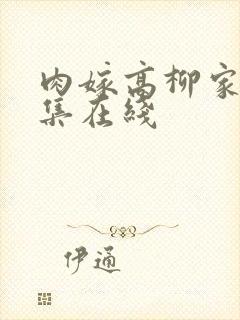 肉嫁高柳家
集在线
伊通